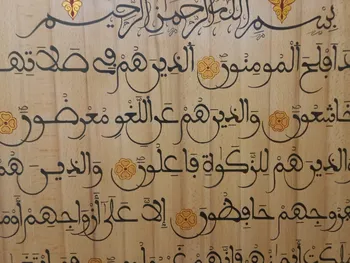 بسم الله الرحمن الرحيم
قد افلح المومنون الذين هم في صلاتهم
خاشعون والذين هم عن اللغو معرضون
والذين هم للزكوة فاعلون والذين
لفروجهم حافظون إلا على أزواجهم أو ما